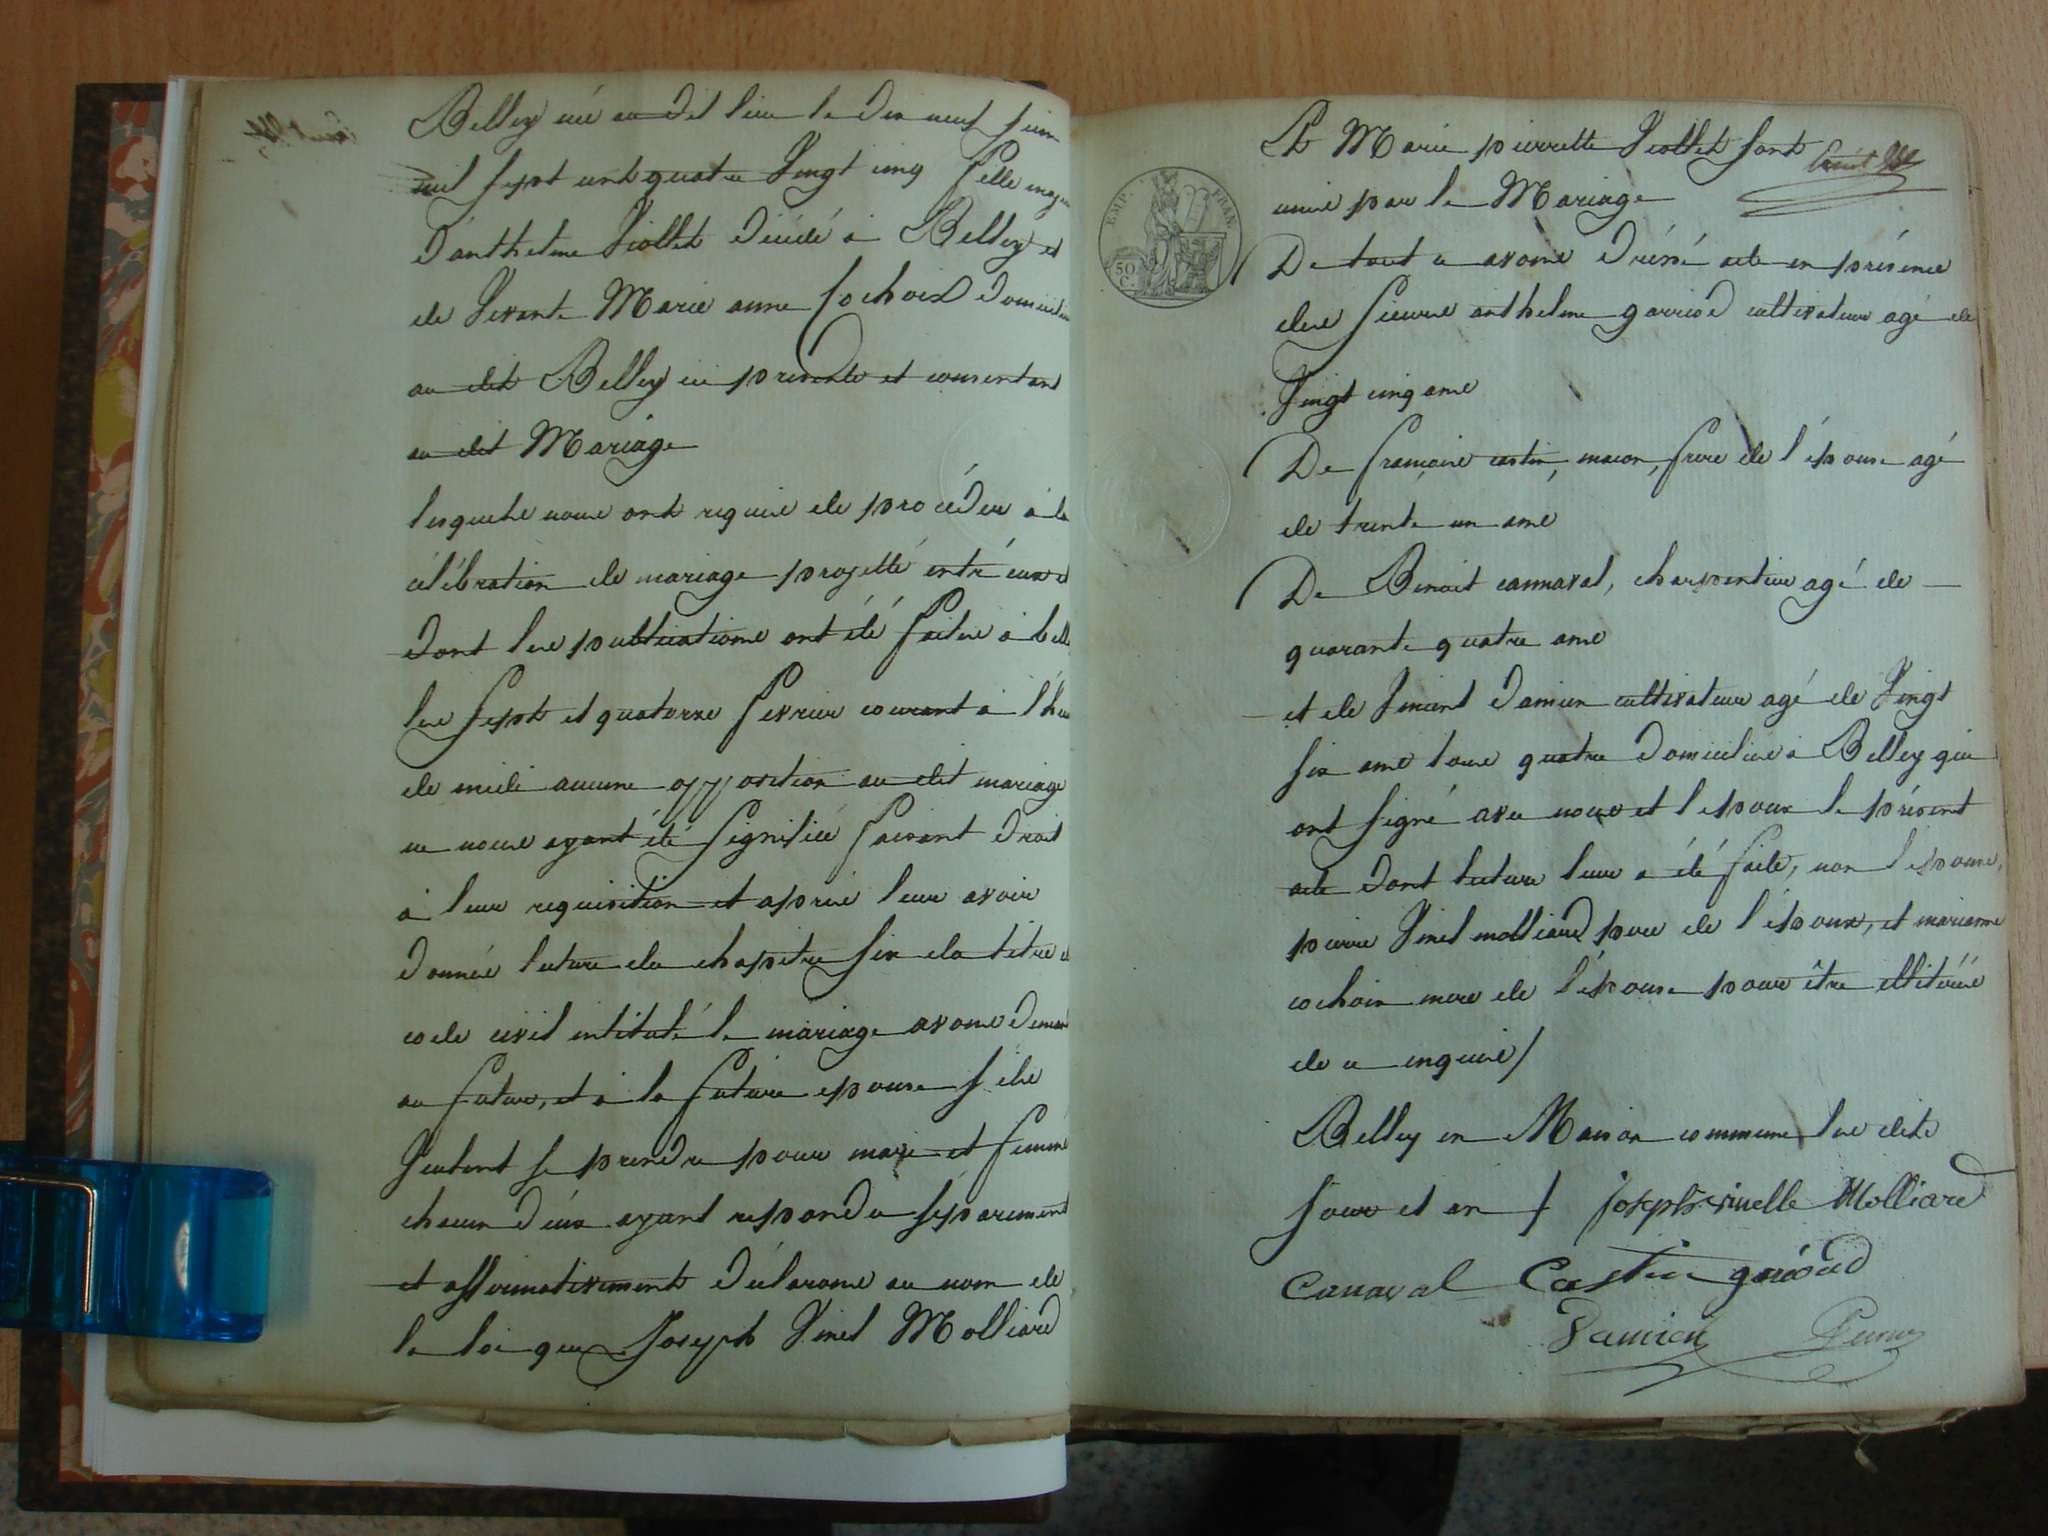 Belley née au dit lieu le dix neuf juin
mil sept cent quatre vingt cinq fille majeure
d'anthelme Viollet décédé à Belley et
de vivante Marie anne Cochoix domiciliée
au dit Belley ici présente et consentant
au dit Mariage
lesquels nous ont requis de procéder à la
célébration de mariage projetté entr'eux et
dont les publications ont été faites à Belley
les sept et quatorze fevrier courant à l'heure
de midi aucune opposition au dit mariage
ne nous ayant été signifiée faisant droit
à leur requisition et après leur avoir
donnée lecture du chapitre six du titre du
code civil intitulé le mariage avons demandé
au futur, et à la future epouse s'ils
veulent se prendre pour mari et femme
chacun d'eux ayant repondu séparement
et affirmativement déclarons au nom de
la loi que Joseph Vinel Molliard
Et Marie pierrette Viollet sont
unis par le Mariage
De tout ce avons dréssé acte en présence
des sieurs anthelme garriod cultivateur agé de
vingt cinq ans
De françois castin, macon, frere de l'épouse agé
de trente un ans
De Benoit cannaval, charpentier agé de
quarante quatre ans
et de Vincent Damien cultivateur agé de vingt
six ans tous quatre domiciliés à Belley qui
ont signé avec nous et l'epoux le présent
acte dont lecture leur a été faite, non l'epouse,
pierre Vinel molliard pere de l'époux, et marianne
cochoix mere de l'épouse pour être illitérés
de ce enquis/
Belley en Maison commune les dits
jour et an / joseph vinelle Molliard
Canaval Castin gariod
Damien
EMP. FRAN.
50 C.